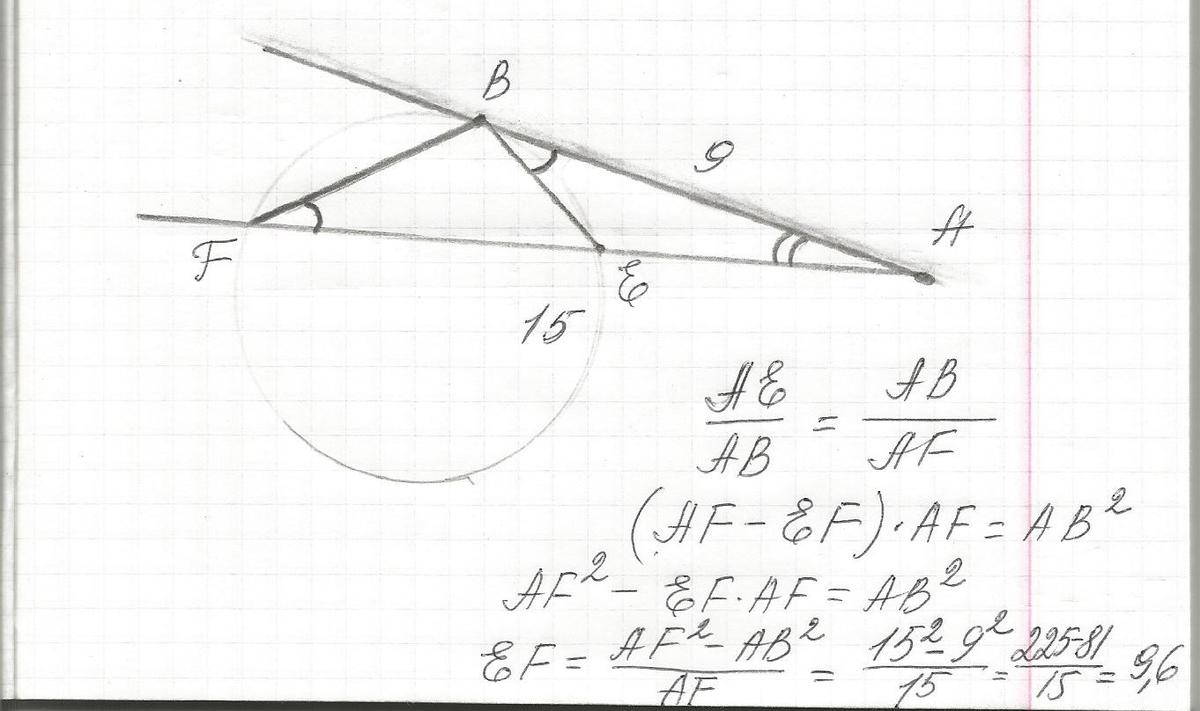 B
9
A
F
E
15
AE/AB = AB/AF
(AF - EF) · AF = AB²
AF² - EF · AF = AB²
EF = (AF² - AB²)/AF = (15² - 9²)/15 = (225-81)/15 = 9,6